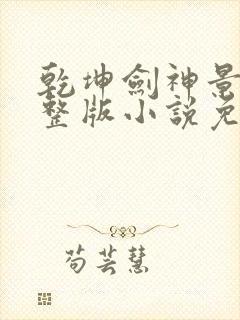 乾坤劍神景
整版小說免
苟芸慧